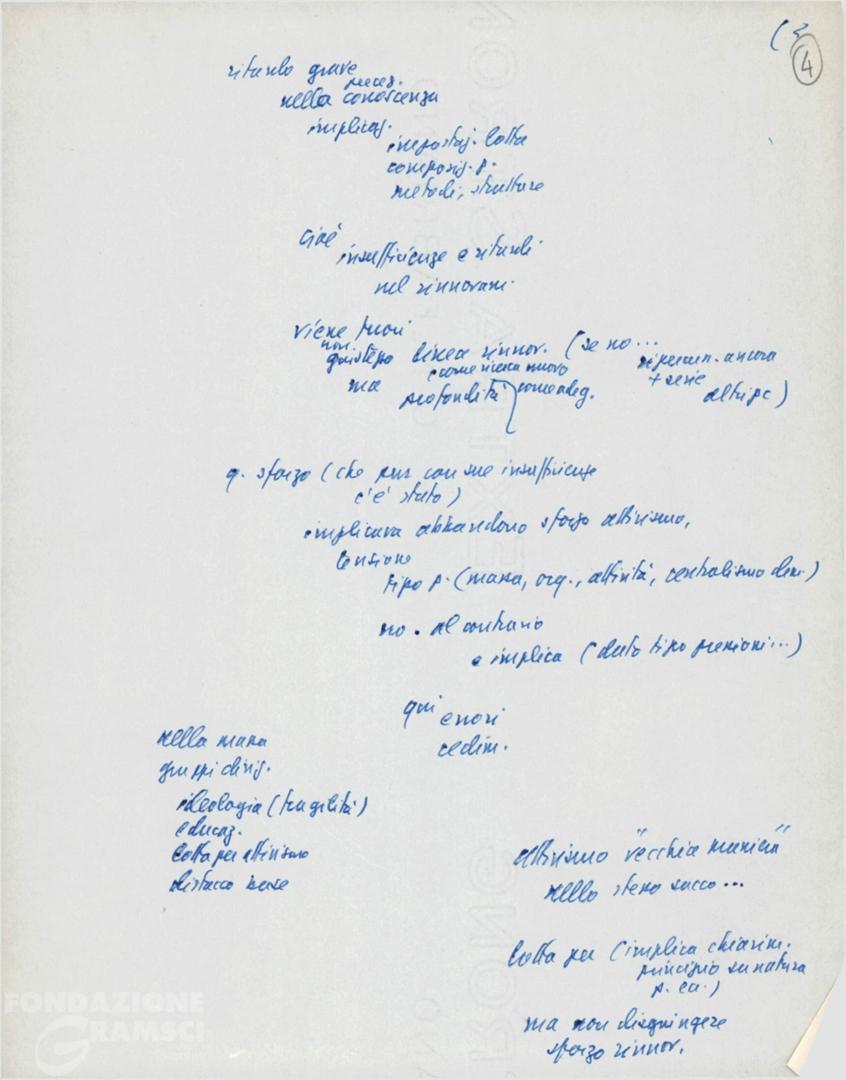 (3
4
ritardo grave
preces.
nella conoscenza
implicaz.
impostaz. lotta
composiz. p.
metodi, strutture
cioè
insufficienze e ritardi
nel rinnovam.
viene fuori
non
giustezza linea rinnov. (se no...
ancora
+ serie
altri pc)
come ricerca nuovo
ma profondità come adeg.
q. sforzo (che pur con sue insufficienze
c'è stato)
implicava abbandono sforzo attivismo,
tensione
tipo p. (massa, org., attività, centralismo dem.)
no. al contrario
e implica (dato tipo pressioni...)
qui errori
cedim.
nella massa
gruppi dirig.
ideologia (fragilità)
educaz.
lotta per attivismo
distacco base
attivismo "vecchia maniera"
nello stesso sacco...
lotta per (implica chiarim.
principio su natura
p. ecc.)
ma non disgiungere
sforzo rinnov.
FONDAZIONE
GRAMSCI